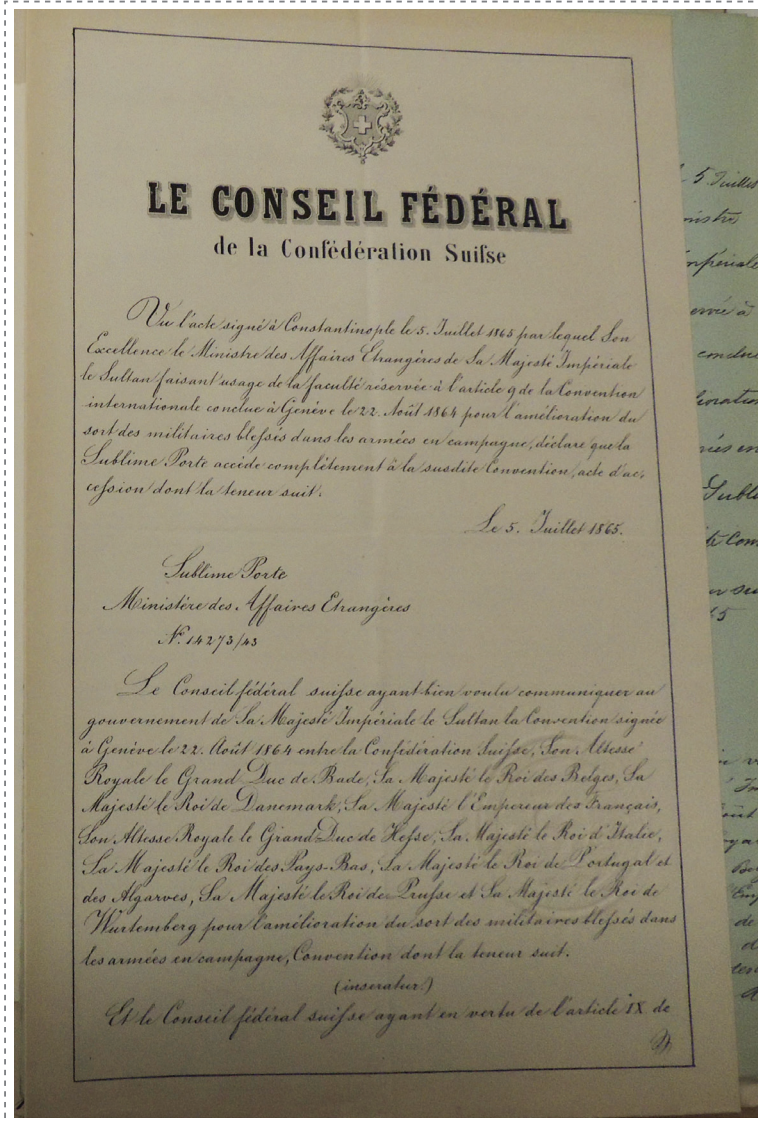 LE CONSEIL FÉDÉRAL
de la Confédération Suiſse
Vu l'acte signé à Constantinople le 5. Juillet 1865 par lequel Son
Excellence le Ministre des Affaires Etrangères de Sa Majesté Impériale
le Sultan faisant usage de la faculté réservée à l'article 9 de la Convention
internationale conclue à Genève le 22. Août 1864 pour l'amélioration du
sort des militaires bleſsés dans les armées en campagne, déclare que la
Sublime Porte accède complètement à la susdite Convention, acte d'ac-
ceſsion dont la teneur suit.
Le 5. Juillet 1865.
Sublime Porte
Ministère des Affaires Etrangères
N° 14273/43
Le Conseil fédéral suiſse ayant bien voulu communiquer au
gouvernement de Sa Majesté Impériale le Sultan la Convention signée
à Genève le 22. Août 1864 entre la Confédération Suiſse, Son Altesse
Royale le Grand Duc de Bade, Sa Majesté le Roi des Belges, Sa
Majesté le Roi de Danemark, Sa Majesté l'Empereur des Français,
Son Altesse Royale le Grand-Duc de Heſse, Sa Majesté le Roi d'Italie,
Sa Majesté le Roi des Pays-Bas, Sa Majesté le Roi de Portugal et
des Algarves, Sa Majesté le Roi de Pruſse et Sa Majesté le Roi de
Wurtemberg pour l'amélioration du sort des militaires bleſsés dans
les armées en campagne, Convention dont la teneur suit.
(inseratur)
Et le Conseil fédéral suiſse ayant en vertu de l'article IX de
5. Juillet